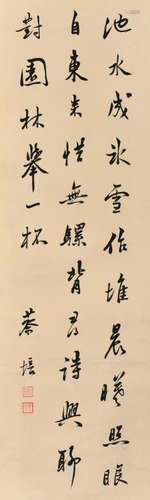 池水成冰雪作堆晨曦照眼
自東来惜無騾背尋詩興聊
對園林舉一杯
蔡培